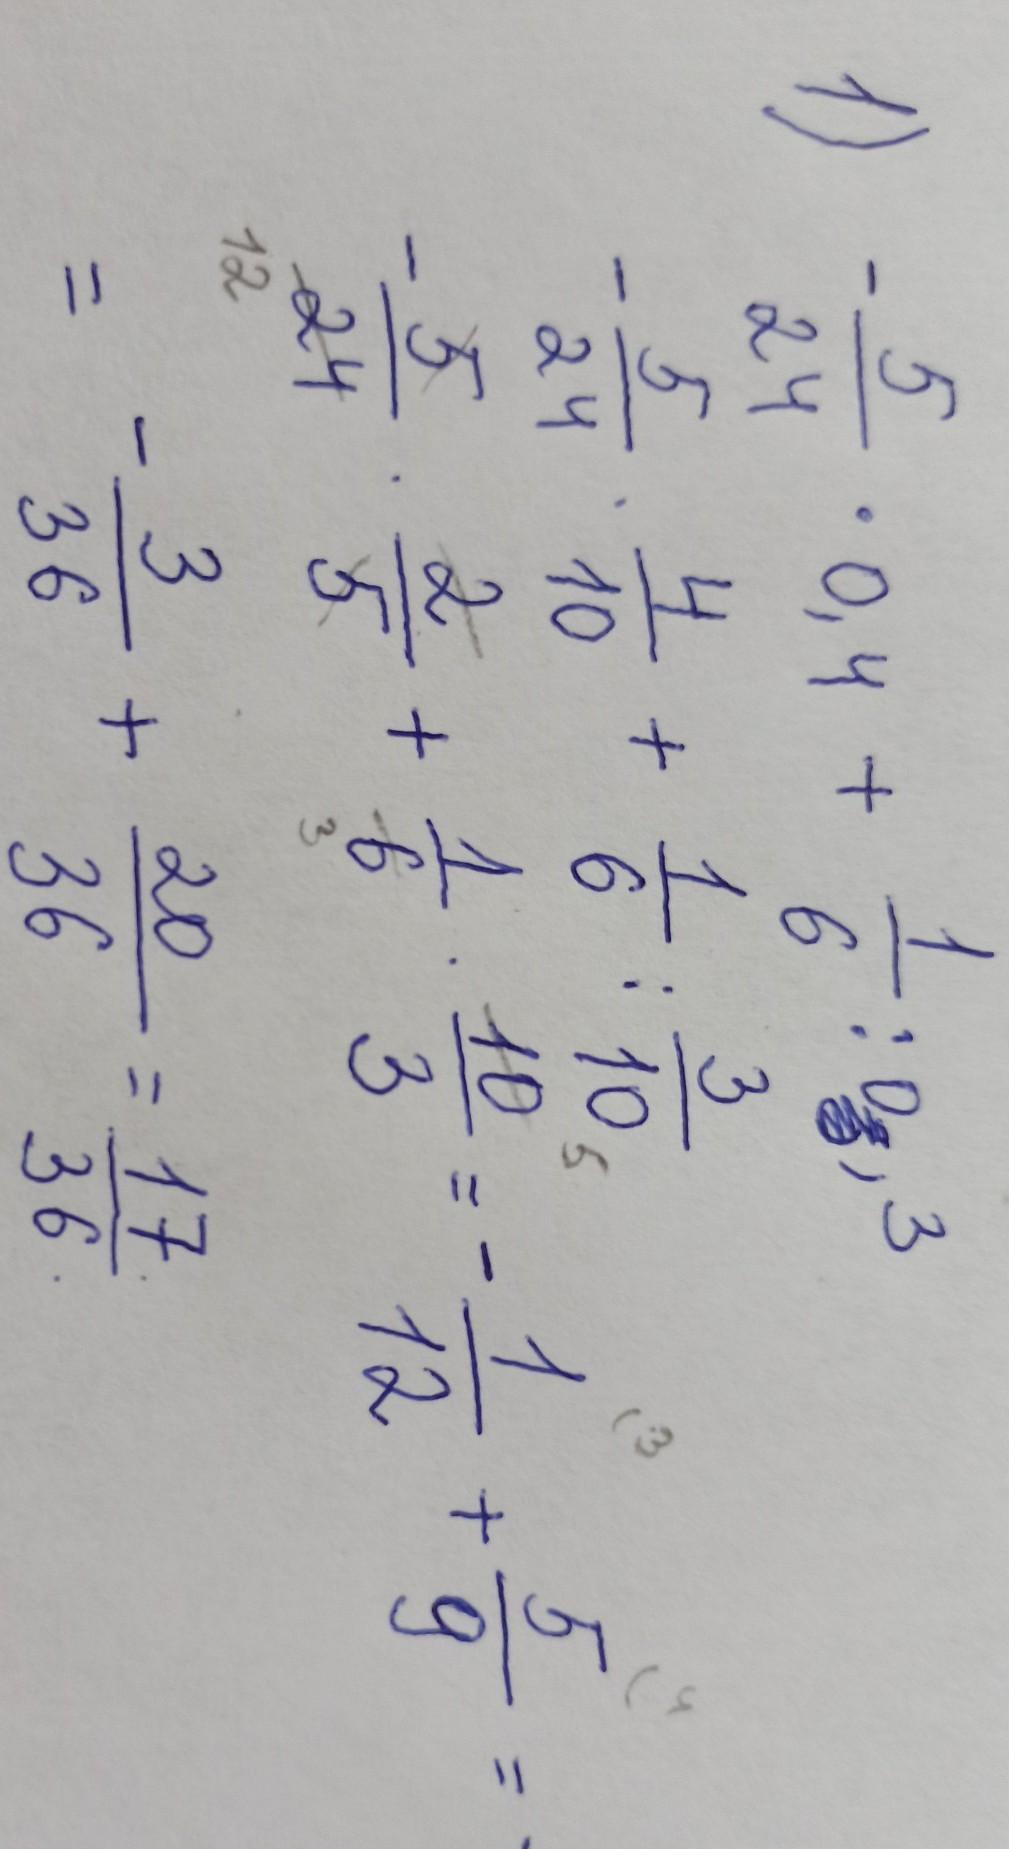 1) -5/24 · 0,4 + 1/6 : 0,3
-5/24 · 4/10 + 1/6 : 3/10
-5/24 · 2/5 + 1/6 · 10/3 = -1/12 + 5/9 =
12 3 5 (3 (4
= -3/36 + 20/36 = 17/36.